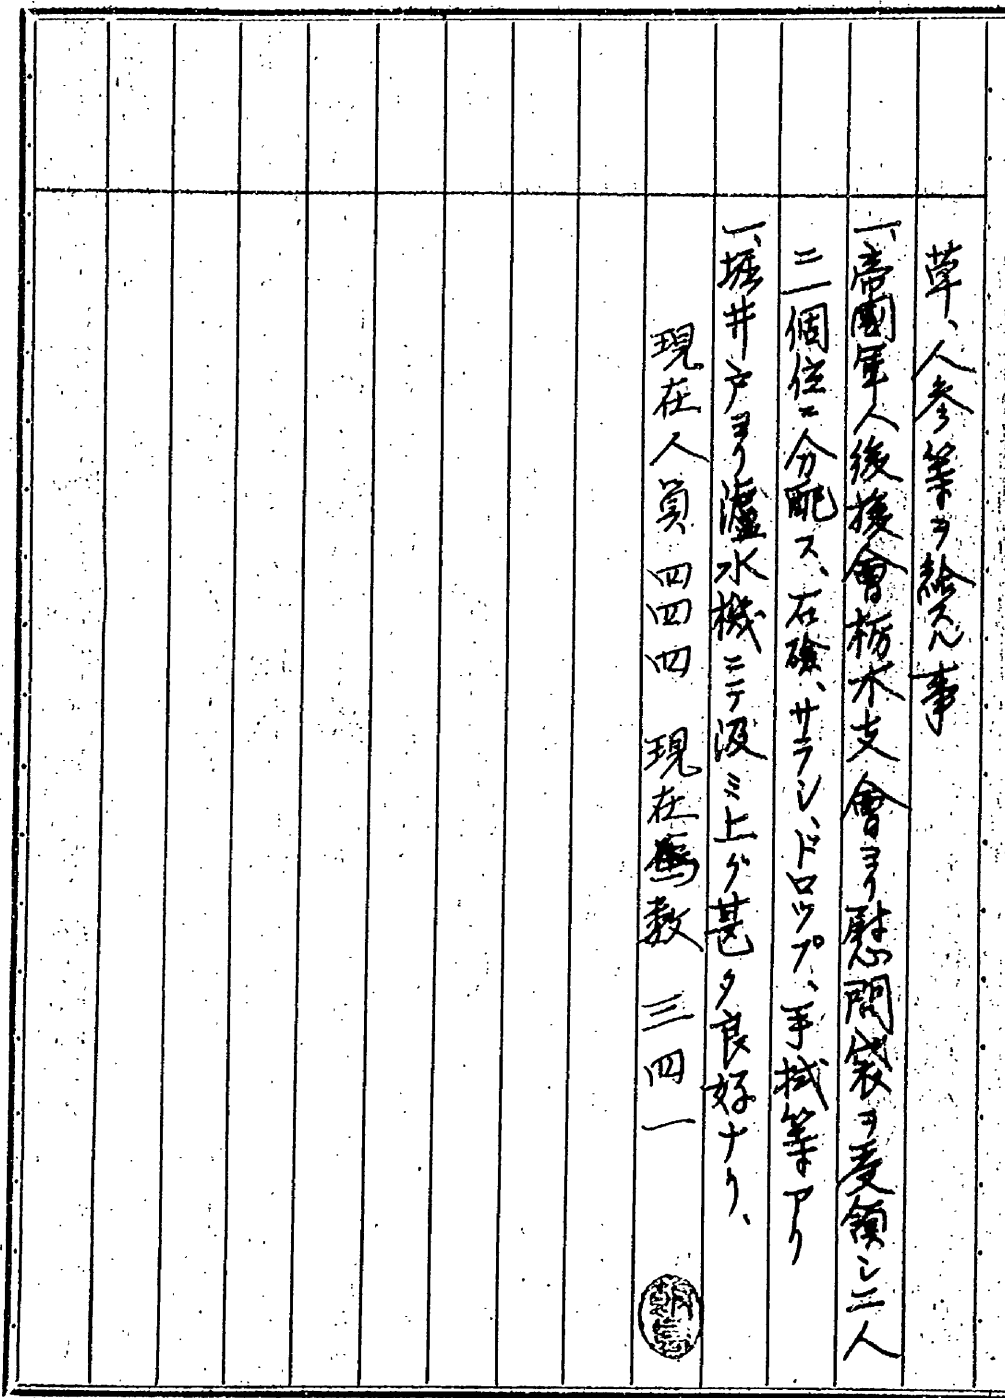 草、人参等ヲ給スル事
一、帝國軍人後援會栃木支會ヨリ慰問袋ヲ受領シ二人
ニ一個位ニ分配ス、石鹸、サラシ、ドロップ、手拭等アリ
一、堀井戸ヨリ濾水機ニテ汲ミ上ゲ甚タ良好ナリ、
現在人員 四四四 現在馬数 三四一